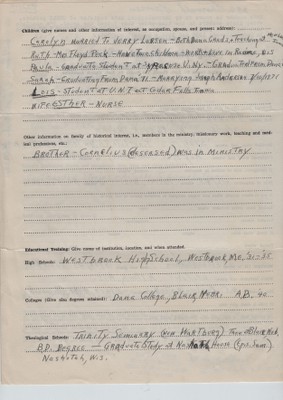 Children (give names and other information of interest, as occupation, spouse, and present address):
Carolyn married to Jerry Lubton - Both Dana Grads + Teaching at
Ruth - Mrs Floyd Peck - Have two children - in Racine, Wis
Paul - Graduate Student at Syracuse Univ - Graduated from Dana
Sarah - Graduating from Dana 71 - Marrying Joseph Anderson
Lois - Student at U.N.I at Cedar Falls Iowa
Wife ESTHER - NURSE
Other information on family of historical interest, i.e., members in the ministry, missionary work, teaching and medical professions, etc.:
BROTHER - Cornelius (deceased) was in MINISTRY
Educational Training: Give name of institution, location, and when attended.
High Schools: WESTBROOK High School, Westbrook, Me.
Colleges (Give also degrees attained): Dana College, Blair, Nebr. A.B.
Theological Schools: Trinity Seminary at Blair Neb,
B.D. Degree - Graduate Study at Nashotah House
Nashotah, Wis.